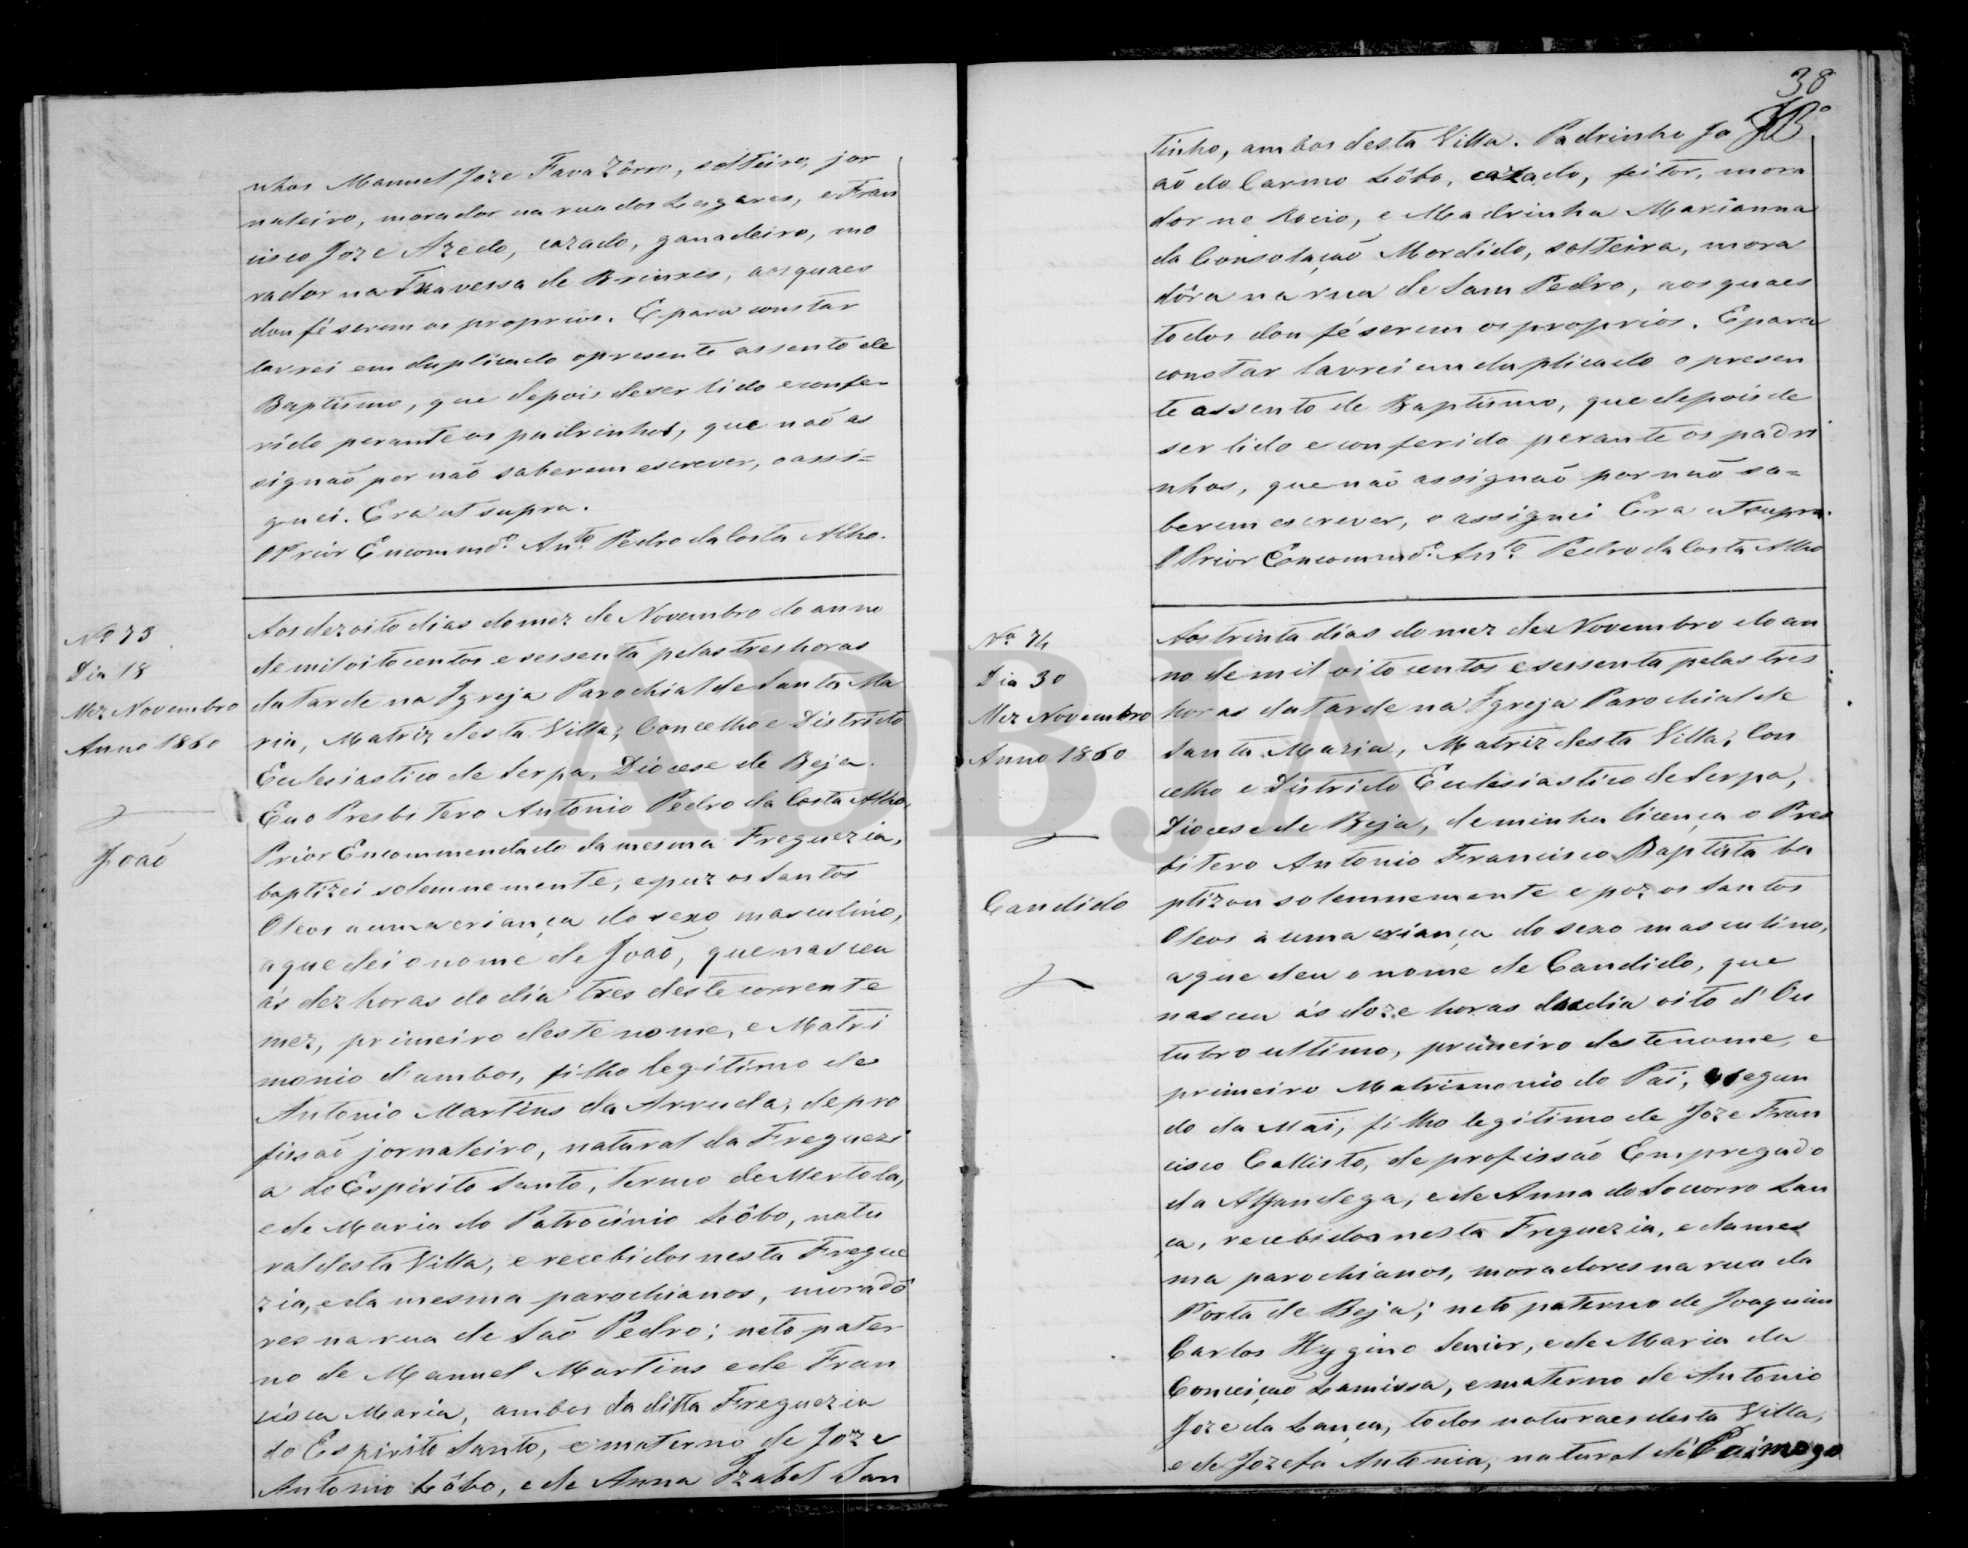 nhos Manuel Joze Fava Zôrro, solteiro, jor
naleiro, morador na rua dos Lagares, e Fran
cisco Joze Azedo, cazado, ganadeiro, mo
rador na Travessa de Brinxes, aos quaes
dou fé serem os proprios. E para constar
lavrei em duplicado o presente assento de
Baptismo, que depois de ser lido e confe-
rido perante os padrinhos, que naõ as
signaõ por naõ saberem escrever, o assi=
gnei. Era ut supra.
O Prior Encommdº. Antº. Pedro da Costa Alho.
Nº 73
Dia 18
Mez Novembro
Anno 1860
Joaõ
Aos dezoito dias do mez de Novembro do anno
de mil oito centos e sessenta pelas tres horas
da tarde na Igreja Parochial de Santa Ma
ria, Matriz desta Villa, Concelho e Districto
Ecclesiastico de Serpa, Diocese de Beja.
Eu o Presbitero Antonio Pedro da Costa Alho,
Prior Encommendado da mesma Freguezia,
baptizei solemnemente, e puz os Santos
Oleos a uma criança do sexo masculino,
a que dei o nome de Joaõ, que nasceu
ás dez horas do dia tres deste corrente
mez, primeiro deste nome, e Matri
monio d'ambos, filho legitimo de
Antonio Martins da Arruda, de pro
fissaõ jornaleiro, natural da Freguezi
a do Espirito Santo, termo de Mertola,
e de Maria do Patrocinio Lôbo, natu
ral desta Villa, e recebidos nesta Fregue
zia, e da mesma parochianos, moradô
res na rua de Saõ Pedro; neto pater
no de Manuel Martins e de Fran
cisca Maria, ambos da ditta Freguezia
do Espirito Santo, e materno de Joze
Antonio Lôbo, e de Anna Izabel San
38
tinho, ambos desta Villa. Padrinho Jo
aõ do Carmo Lôbo, cazado, feitor, mora
dor no Rocio, e Madrinha Marianna
da Consolaçaõ Mordido, solteira, mora
dôra na rua de Sam Pedro, aos quaes
todos dou fé serem os proprios. E para
constar lavrei em duplicado o presen
te assento de Baptismo, que depois de
ser lido e conferido perante os padri
nhos, que naõ assignaõ por naõ sa=
berem escrever, o assignei Era ut supra.
O Prior Encommdº. Antº. Pedro da Costa Alho
Nº 74
Dia 30
Mez Novembro
Anno 1860
Candido
Aos trinta dias do mez de Novembro do an
no de mil oito centos e sessenta pelas tres
horas da tarde na Igreja Parochial de
Santa Maria, Matriz desta Villa, Con
celho e Districto Ecclesiastico de Serpa,
Diocese de Beja, de minha licença o Pres
bitero Antonio Francisco Baptista ba
ptizou solemnemente e poz os Santos
Oleos a uma criança do sexo masculino,
a que deu o nome de Candido, que
nasceu ás doze horas do dia oito d'Ou
tubro ultimo, primeiro deste nome, e
primeiro Matrimonio do Pai, e segun
do da Mai, filho legitimo de Joze Fran
cisco Callisto, de profissaõ Empregado
da Alfandega, e de Anna do Socorro Lan
ça, recebidos nesta Freguezia, e da mes
ma parochianos, moradores na rua da
Porta de Beja; neto paterno de Joaquim
Carlos Hygino Senior, e de Maria da
Conceiçaõ Lamissa, e materno de Antonio
Joze da Lança, todos naturaes desta Villa,
e de Jozefa Antonia, natural de Paimogo
ADBJA